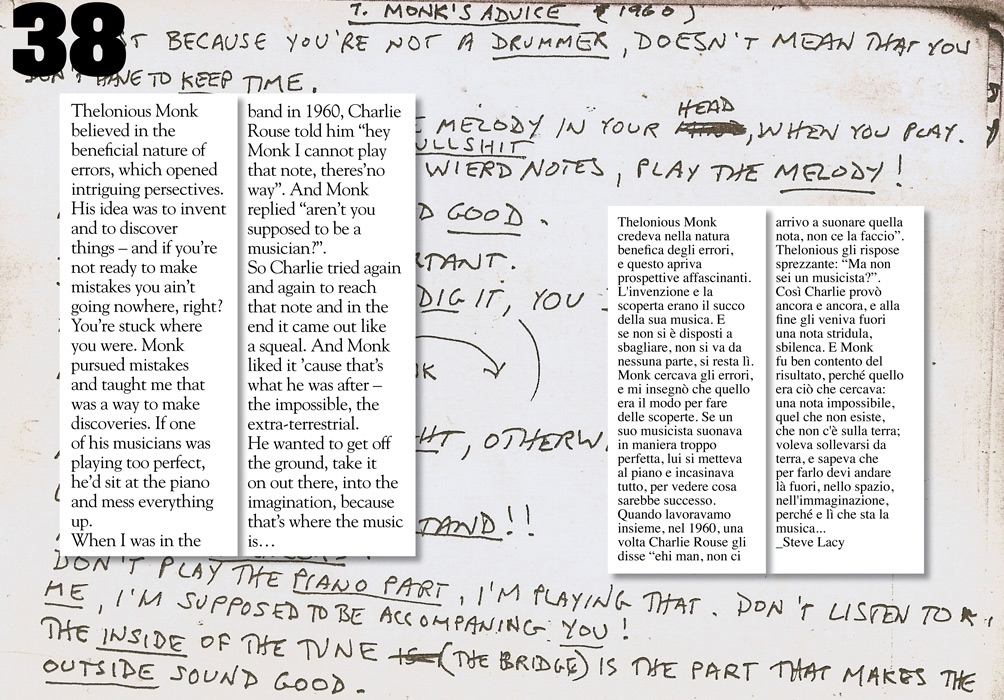 38
T. MONK'S ADVICE (1960)
ST BECAUSE YOU'RE NOT A DRUMMER, DOESN'T MEAN THAT YOU
DON'T HAVE TO KEEP TIME.
HEAD
MELODY IN YOUR , WHEN YOU PLAY.
BULLSHIT
WIERD NOTES, PLAY THE MELODY!
D GOOD.
RTANT.
DIG IT, YOU
NK
HT, OTHERW
TAND!!
DON'T PLAY THE PIANO PART, I'M PLAYING THAT. DON'T LISTEN TO
ME, I'M SUPPOSED TO BE ACCOMPANING YOU!
THE INSIDE OF THE TUNE IS (THE BRIDGE) IS THE PART THAT MAKES THE
OUTSIDE SOUND GOOD.
Thelonious Monk
believed in the
beneficial nature of
errors, which opened
intriguing persectives.
His idea was to invent
and to discover
things – and if you’re
not ready to make
mistakes you ain’t
going nowhere, right?
You’re stuck where
you were. Monk
pursued mistakes
and taught me that
was a way to make
discoveries. If one
of his musicians was
playing too perfect,
he’d sit at the piano
and mess everything
up.
When I was in the
band in 1960, Charlie
Rouse told him “hey
Monk I cannot play
that note, theres’no
way”. And Monk
replied “aren’t you
supposed to be a
musician?”.
So Charlie tried again
and again to reach
that note and in the
end it came out like
a squeal. And Monk
liked it ’cause that’s
what he was after –
the impossible, the
extra-terrestrial.
He wanted to get off
the ground, take it
on out there, into the
imagination, because
that’s where the music
is…
Thelonious Monk
credeva nella natura
benefica degli errori,
e questo apriva
prospettive affascinanti.
L'invenzione e la
scoperta erano il succo
della sua musica. E
se non si è disposti a
sbagliare, non si va da
nessuna parte, si resta lì.
Monk cercava gli errori,
e mi insegnò che quello
era il modo per fare
delle scoperte. Se un
suo musicista suonava
in maniera troppo
perfetta, lui si metteva
al piano e incasinava
tutto, per vedere cosa
sarebbe successo.
Quando lavoravamo
insieme, nel 1960, una
volta Charlie Rouse gli
disse “ehi man, non ci
arrivo a suonare quella
nota, non ce la faccio”.
Thelonious gli rispose
sprezzante: “Ma non
sei un musicista?”.
Così Charlie provò
ancora e ancora, e alla
fine gli veniva fuori
una nota stridula,
sbilenca. E Monk
fu ben contento del
risultato, perché quello
era ciò che cercava:
una nota impossibile,
quel che non esiste,
che non c'è sulla terra;
voleva sollevarsi da
terra, e sapeva che
per farlo devi andare
là fuori, nello spazio,
nell'immaginazione,
perché e lì che sta la
musica...
_Steve Lacy